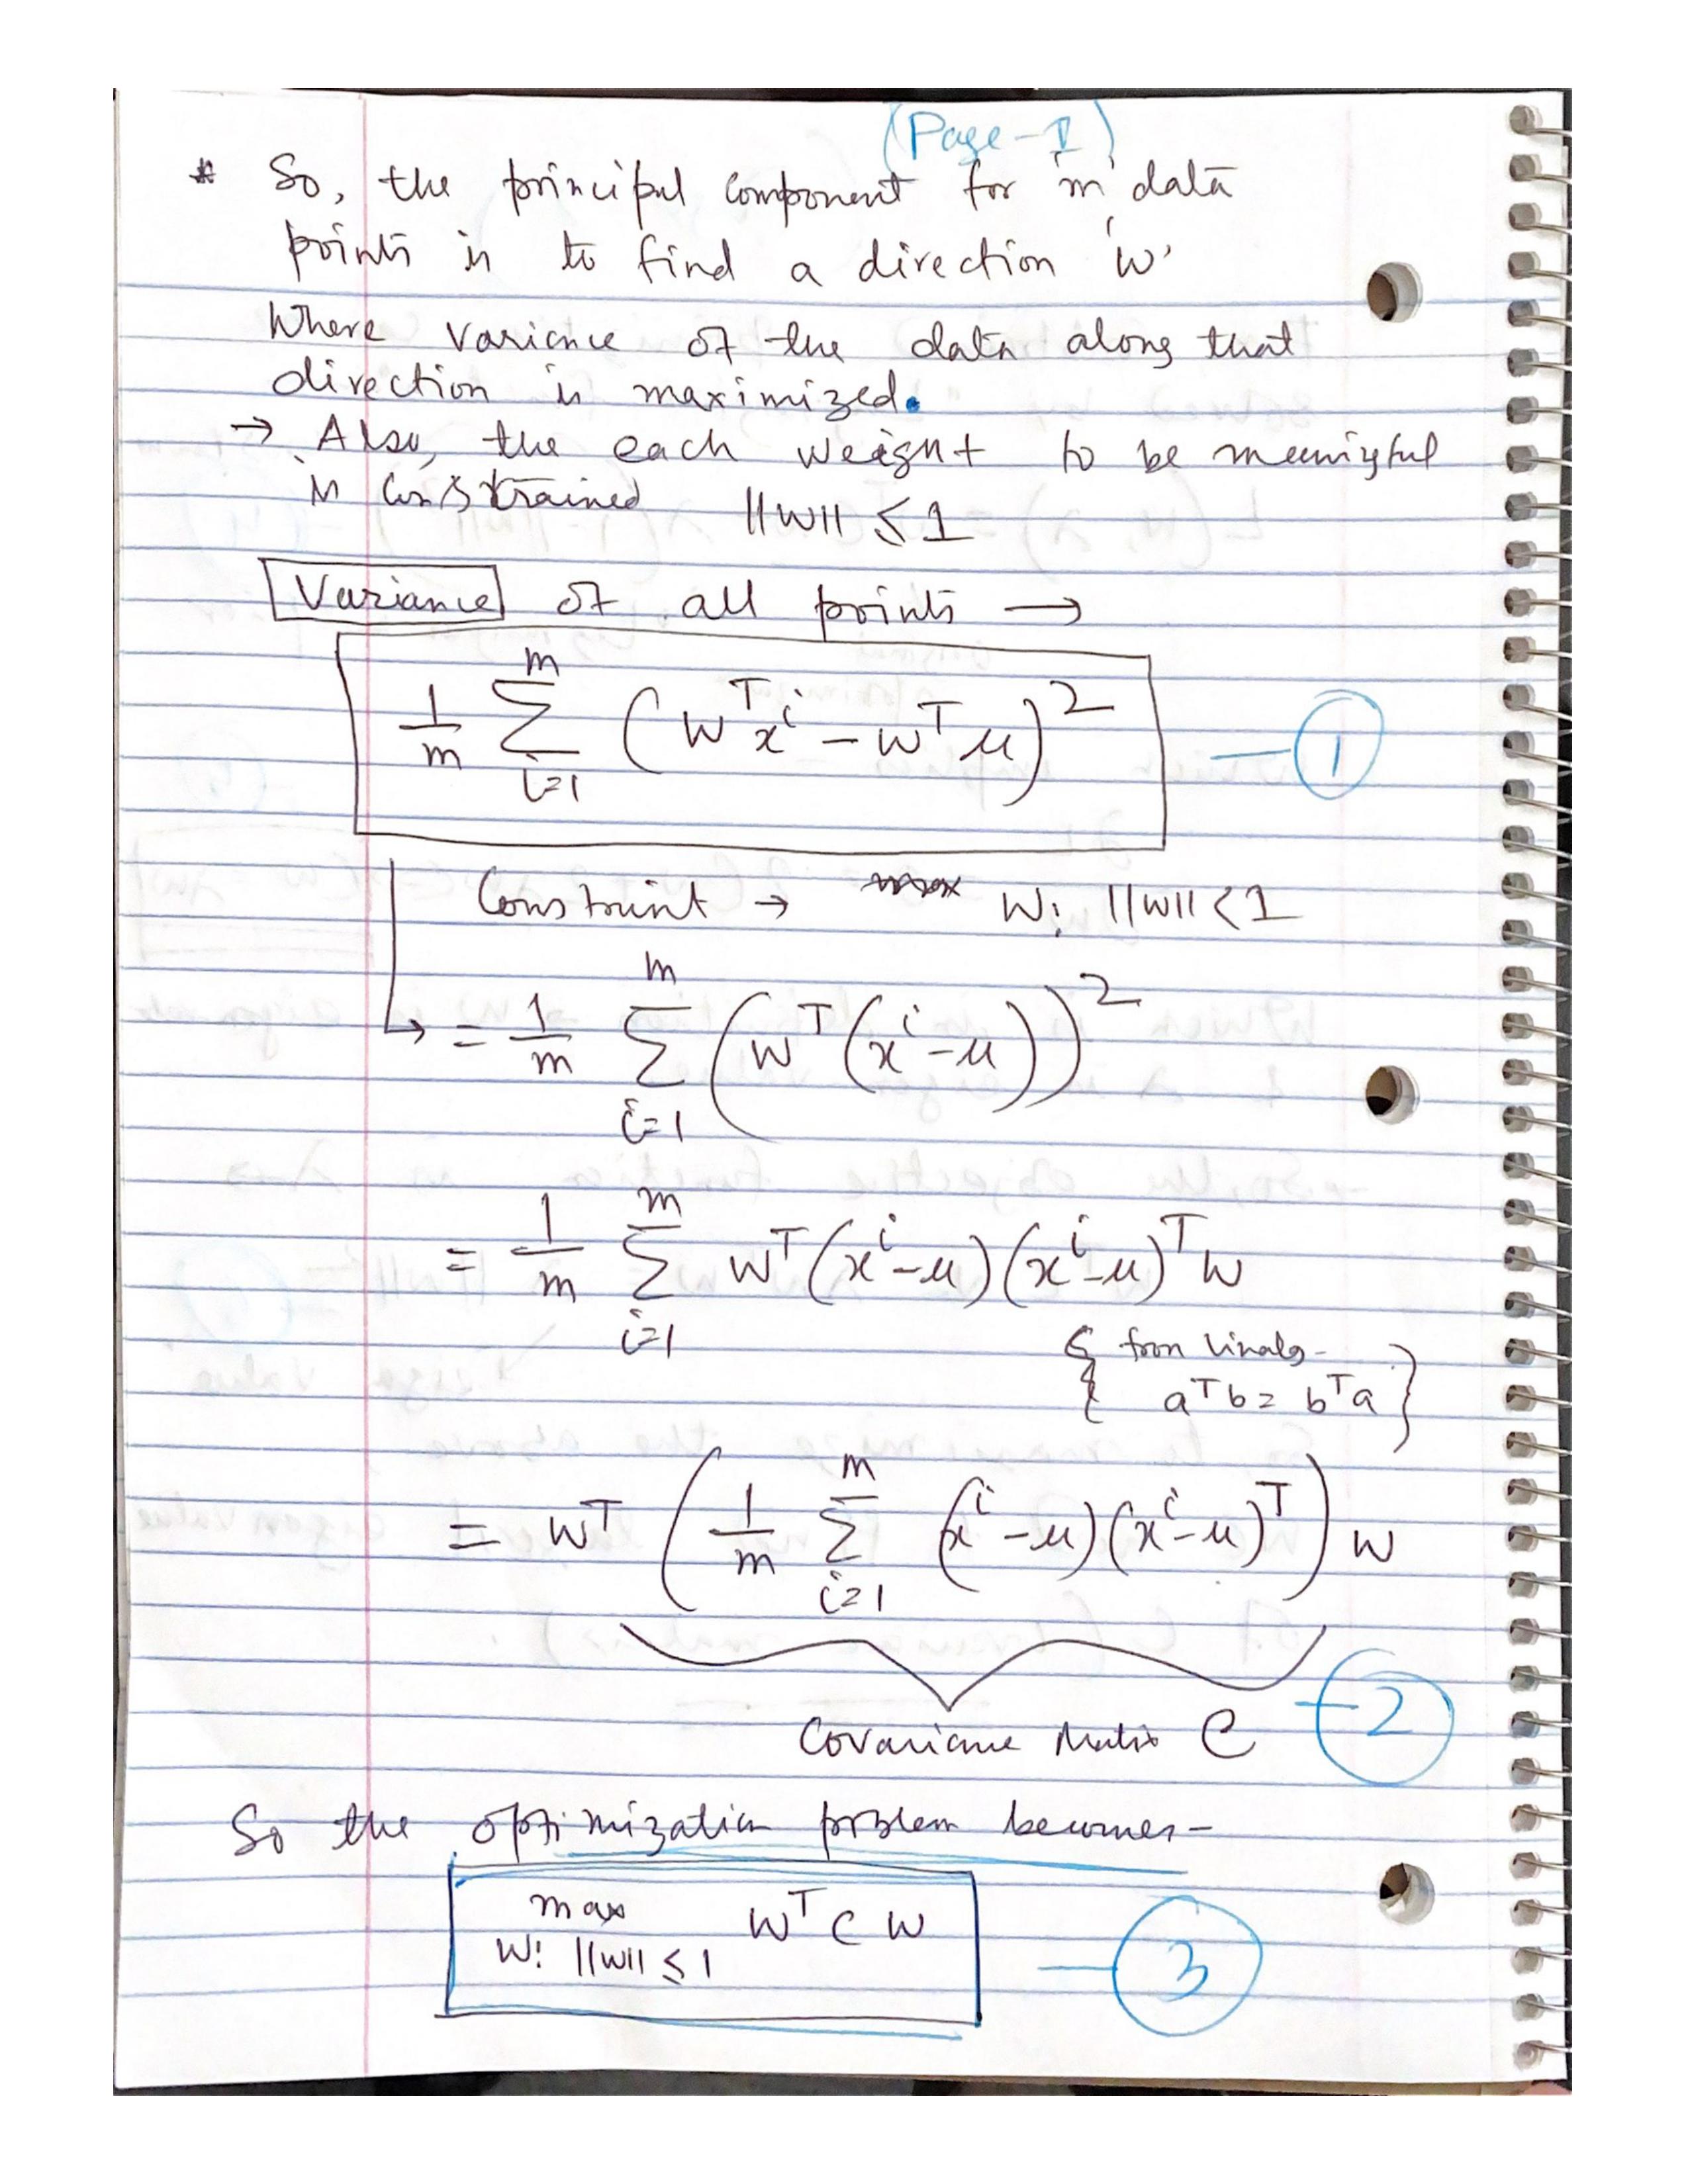 (Page-1)
* So, the principal component for 'm' data
points is to find a direction 'w'
where variance of the data along that
direction is maximized.
→ Also, the each weight to be meaningful
is constrained ||w|| ≤ 1
Variance of all points →
1/m Σ_{i=1}^{m} (w^T x^i - w^T μ)^2 — 1
Constraint → max w: ||w|| < 1
= 1/m Σ_{i=1}^{m} (w^T (x^i - μ))^2
= 1/m Σ_{i=1}^{m} w^T (x^i - μ) (x^i - μ)^T w
{ from linalg -
a^T b = b^T a }
= w^T ( 1/m Σ_{i=1}^{m} (x^i - μ) (x^i - μ)^T ) w
Covariance Matrix C — 2
So the optimization problem becomes -
max w^T C w
w: ||w|| ≤ 1 — 3